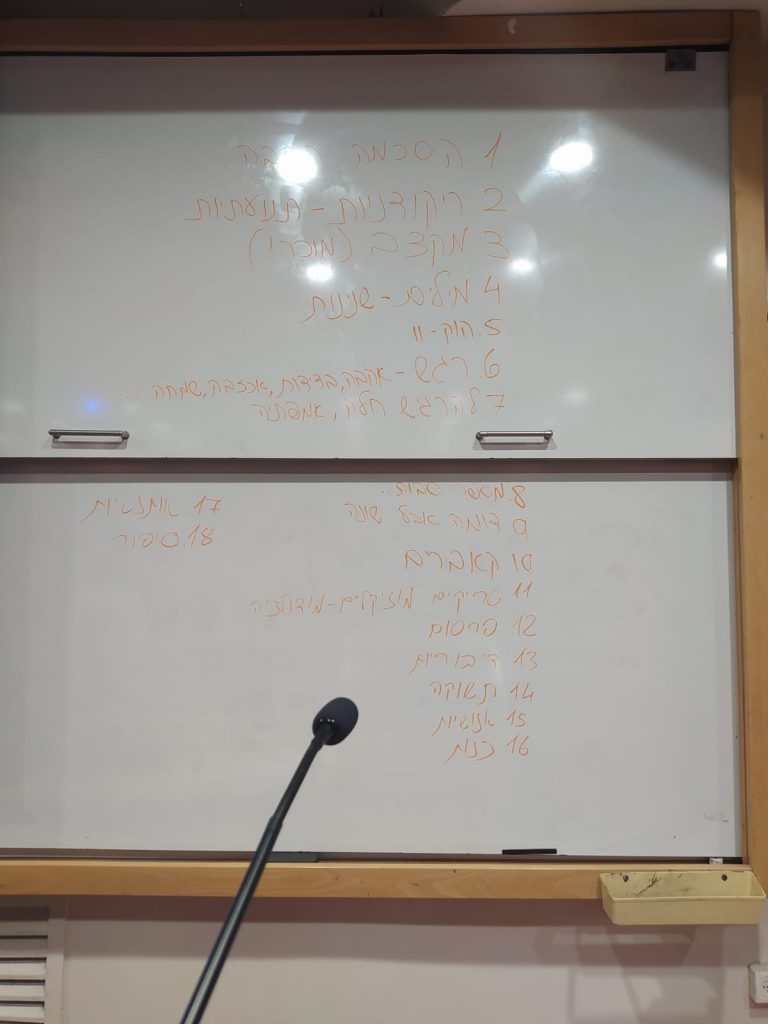 1 הסכמה רחבה
2. ריקודניות - תנועתיות
3 מקצב (מוכר!)
4 מילים - שנינות
5. הוק - וו
6. רגש - אהבה, בדידות, אכזבה, שמחה...
7. להרגיש חלק, אמפתיה
8. מספר
9. דומה אבל שונה
10 קאברים
11. טריקים מוזיקלים - מודולציה
12 פרסום
13 דיבוריות
14 תשוקה
15 אנושיות
16 כנות
17 אותנטיות
18. סיפור